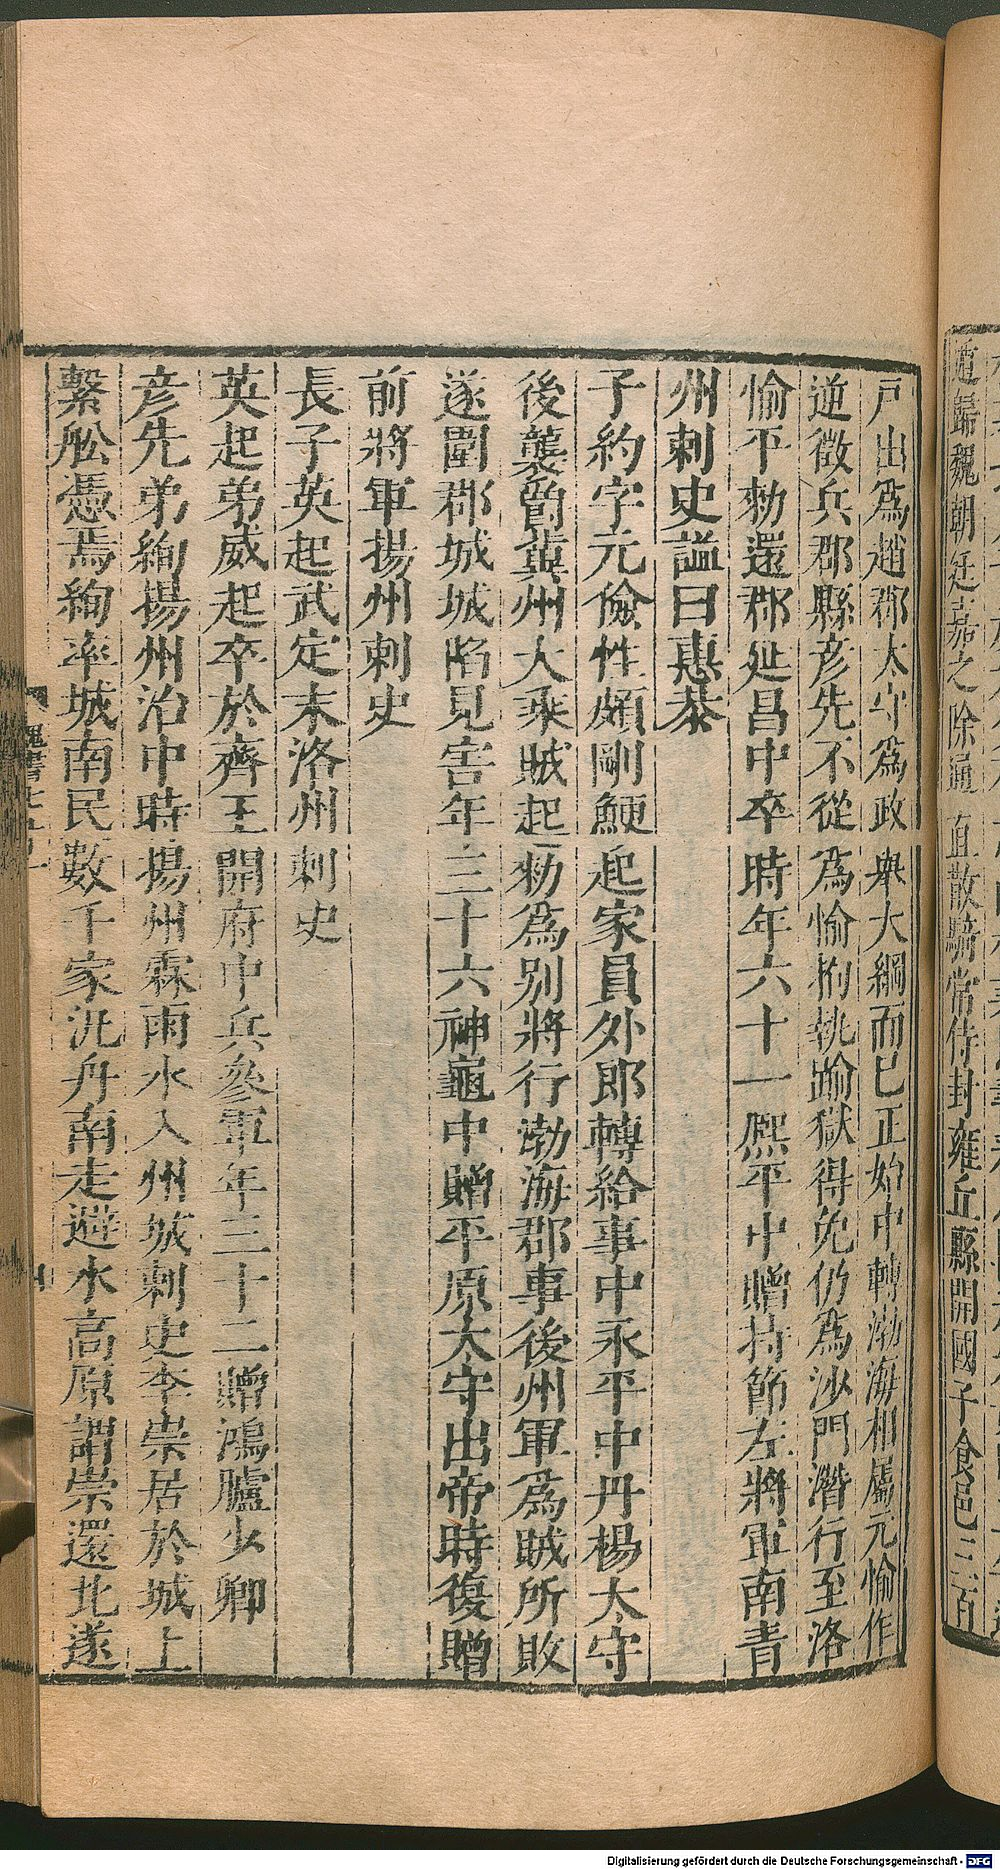 戸出爲趙郡太守爲政舉大綱而已正始中轉渤海相屬元愉作
逆徵兵郡縣彥先不從爲愉拘執踰獄得免仍爲沙門潛行至洛
愉平勑還郡延昌中卒時年六十一熈平中贈持節左將軍南青
州刺史謚曰惠恭
子約字元儉性頗剛鯁起家員外郎轉給事中永平中丹楊太守
後襲爵冀州大乘賊起勑爲別將行渤海郡事後州軍爲賊所敗
遂圍郡城城陷見害年三十六神龜中贈平原太守出帝時復贈
前將軍揚州刺史
長子英起武定末洛州刺史
英起弟威起卒於齊王開府中兵參軍年三十二贈鴻臚少卿
彥先弟絢揚州治中時揚州霖雨水入州城刺史李崇居於城上
繫舩憑焉絢率城南民數千家汎舟南走避水高原謂崇還北遂
魏書七十一
范歸魏朝廷嘉之除通直散騎常侍封雍丘縣開國子食邑三百
Digitalisierung gefördert durch die Deutsche Forschungsgemeinschaft - DFG